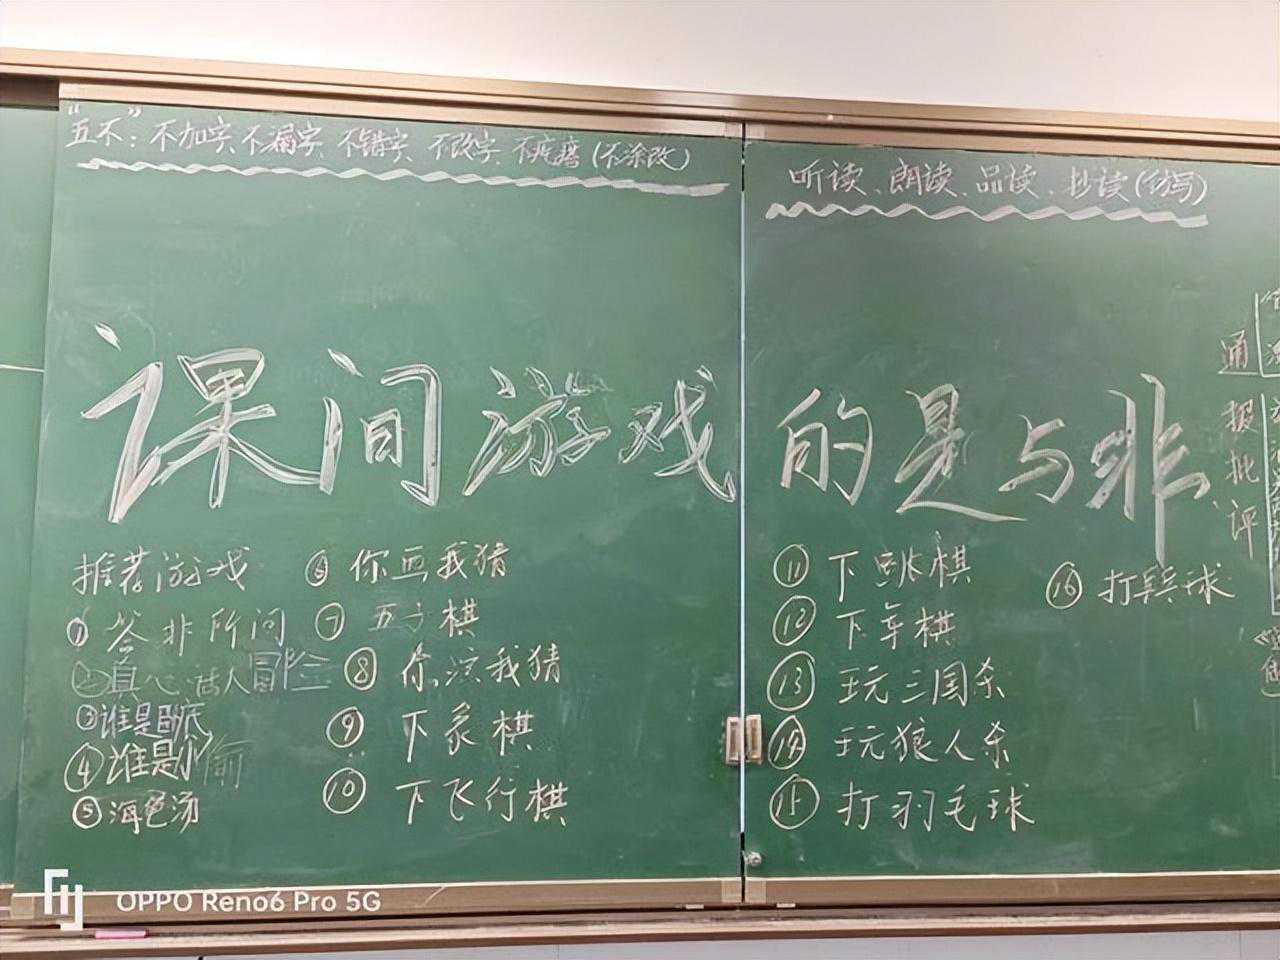 “五不”：不加字、不漏字、不错字、不改字、不疙瘩（不涂改）
听读、朗读、品读、抄读（仿写）
课间游戏的是与非
通报批评
推荐游戏
①答非所问
②真心话大冒险
③谁是卧底
④谁是小偷
⑤海龟汤
⑥你画我猜
⑦五子棋
⑧你演我猜
⑨下象棋
⑩下飞行棋
⑪下跳棋
⑫下军棋
⑬玩三国杀
⑭玩狼人杀
⑮打羽毛球
⑯打乒乓球
OPPO Reno6 Pro 5G